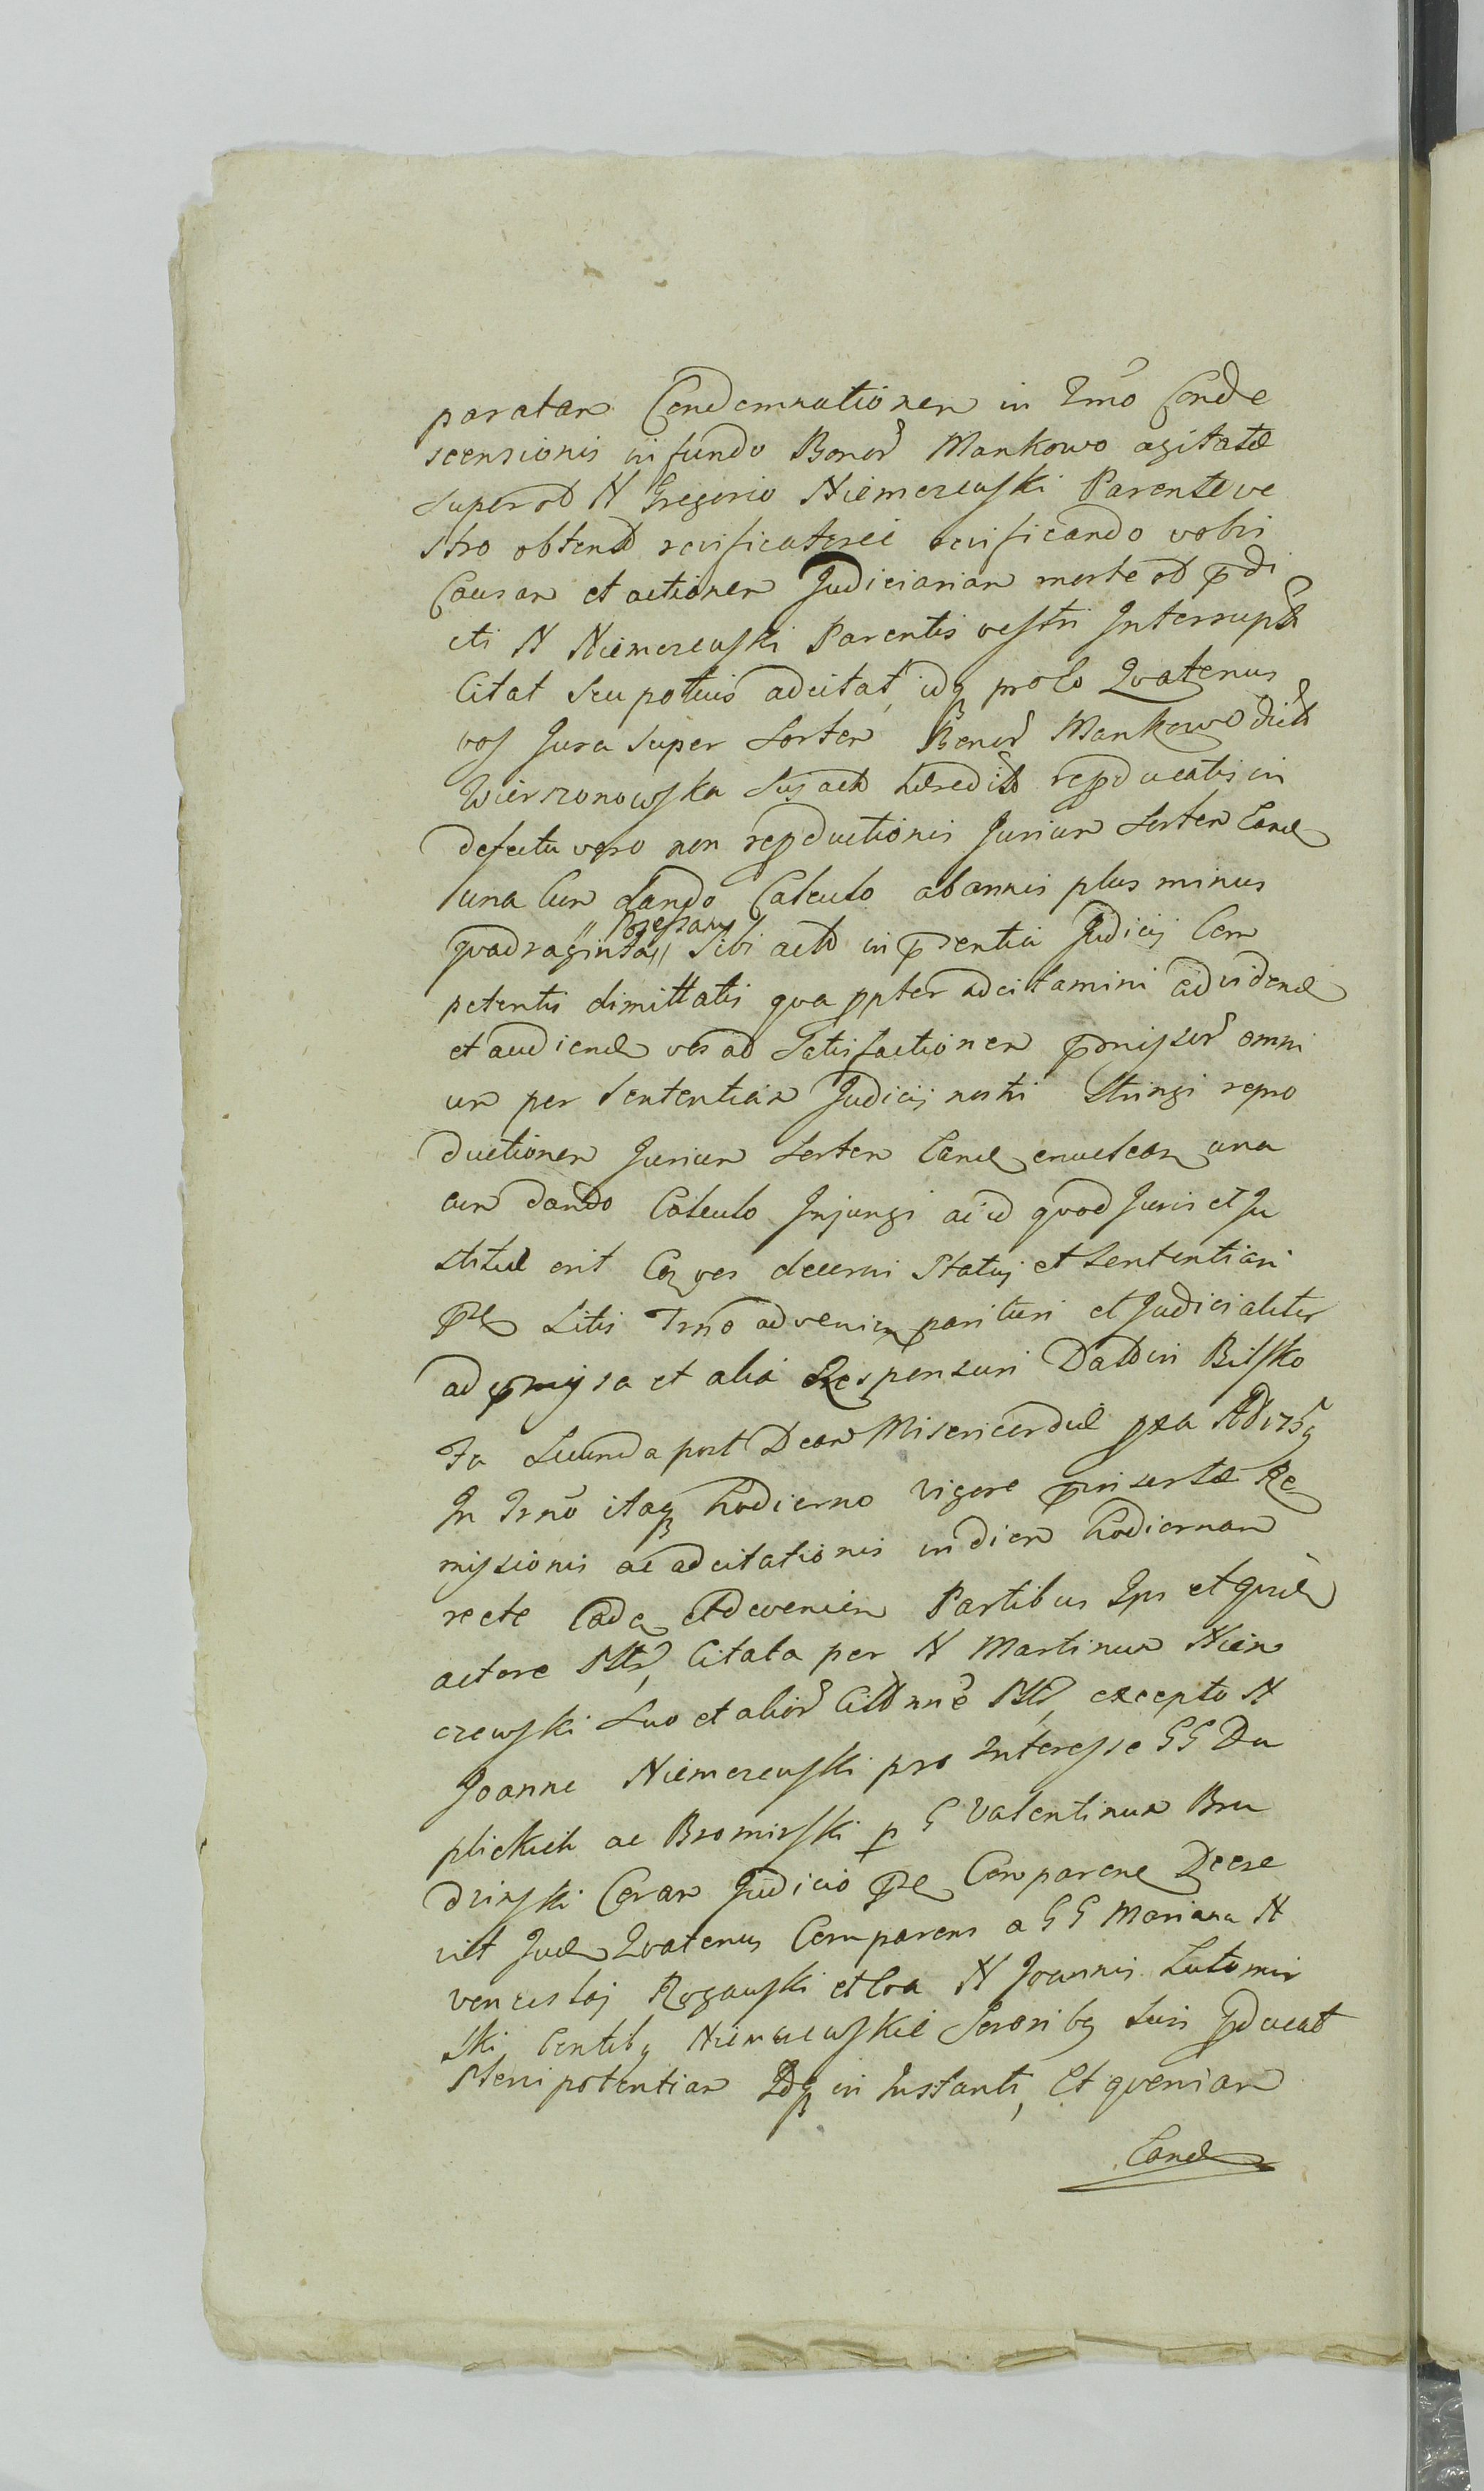 paratam Condemnationem in Trmo Conde
scensionis in fundo Bonor Mankowo agitatæ
super od N Gregorio Niemczewski Parente ve
stro obtend reificatorie reificando vobis
Causam et actionem Judiciariam morte od prædi
cti N Niemczewski Parentis vestri Interrupta
Citat seu potius adcitat, idq prolo Quatenus
vos Jura super Sortem Bonor Mankowo dicta
Wierszonowska Sus act hæredit repducatis in
defectu vero non repductionis Jurium Sortem Eand
una Cum dando Calculo ab annis plus minus
quadraginta // Possessam // Sibi acto in præsentia Judicij Com
petentis dimittatis qua ppter adcitamini ad vidend
et audiend vos ad Satisfactionem præmissor omni
um per Sententiam Judicij nostri Stringi repro
ductionem Jurium Sortem Eand una
cum dando Calculo Injungi ac id quod Juris et Ju
stitiæ erit decerni Statui et Sententiari
Litis Trmo advenien parituri et Judicialiter
ad præmissa et alia Responsuri Datt in Bilsko
Fa Secunda post Dcam Misericordiæ pxa AD 175
In Trmo itaq hodierno vigore præinsertæ Re
missionis ac adcitationis in diem hodiernam
recte Cade Advenien Partibus Ips et quid
actore Citata per N Martinum Niem
czewski Suo et alior Citt nne excepto N
Joanne Niemczewski pro Interesse GG Du
plickich ac Bromirski p G Valentinum Bru
dzinski Coram Judicio Comparend Decre
vit Jud Quatenus Comparens a GG Mariana N
venceslaj Rogawski et N Joannis Lutomir
ski, Niemczewskie Sororibq Suis pducat
Plenipotentiam Idq in Instanti, Et quoniam
Eand